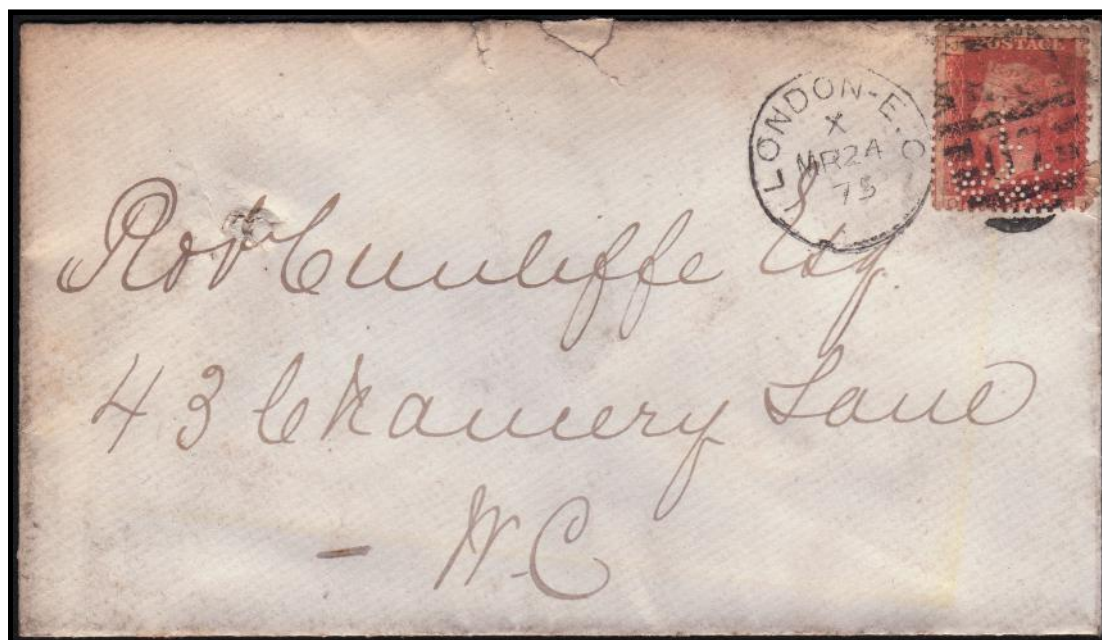 POSTAGE
LONDON-E.C
X
MR 24
75
Robt Cunliffe Esq.
43 Chancery Lane
W.C